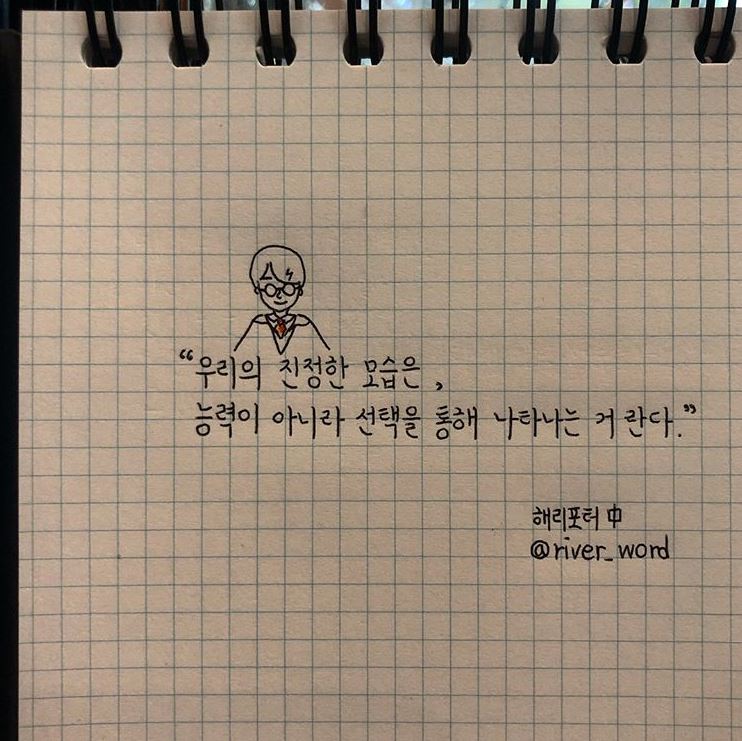 “우리의 진정한 모습은,
능력이 아니라 선택을 통해 나타나는 거란다.”
해리포터 中
@river_word